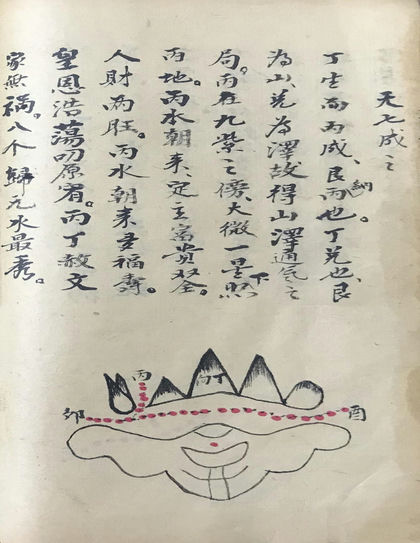 天七成之
丁生而丙成、艮納丙也。丁兑也、艮
为山、兑为澤故得山澤通氣之
局。丙在九紫之傍、太微一星下照
丙地。丙水朝来、定主富贵双全。
人財两旺。丙水朝来主福壽。
皇恩浩蕩叨原宥。丙丁赦文
家無禍。八个歸元水最秀。
丙
丁
卯
酉